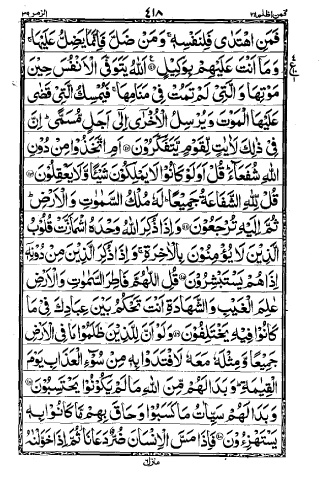 فمن اظلم ٢٤ ٤١٨ الزمر ٣٩
فَمَنِ اهْتَدٰى فَلِنَفْسِهٖ ۚ وَمَنْ ضَلَّ فَاِنَّمَا يَضِلُّ عَلَيْهَا ۚ
وَمَآ اَنْتَ عَلَيْهِمْ بِوَكِيْلٍ ۝ اَللّٰهُ يَتَوَفَّى الْاَنْفُسَ حِيْنَ
مَوْتِهَا وَالَّتِيْ لَمْ تَمُتْ فِيْ مَنَامِهَا ۚ فَيُمْسِكُ الَّتِيْ قَضٰى
عَلَيْهَا الْمَوْتَ وَيُرْسِلُ الْاُخْرٰٓى اِلٰٓى اَجَلٍ مُّسَمًّى ؕ اِنَّ
فِيْ ذٰلِكَ لَاٰيٰتٍ لِّقَوْمٍ يَّتَفَكَّرُوْنَ ۝ اَمِ اتَّخَذُوْا مِنْ دُوْنِ
اللّٰهِ شُفَعَآءَ ؕ قُلْ اَوَلَوْ كَانُوْا لَا يَمْلِكُوْنَ شَيْـًٔا وَّلَا يَعْقِلُوْنَ ۝
قُلْ لِّلّٰهِ الشَّفَاعَةُ جَمِيْعًا ؕ لَهٗ مُلْكُ السَّمٰوٰتِ وَالْاَرْضِ ؕ
ثُمَّ اِلَيْهِ تُرْجَعُوْنَ ۝ وَاِذَا ذُكِرَ اللّٰهُ وَحْدَهُ اشْمَاَزَّتْ قُلُوْبُ
الَّذِيْنَ لَا يُؤْمِنُوْنَ بِالْاٰخِرَةِ ۚ وَاِذَا ذُكِرَ الَّذِيْنَ مِنْ دُوْنِهٖٓ
اِذَا هُمْ يَسْتَبْشِرُوْنَ ۝ قُلِ اللّٰهُمَّ فَاطِرَ السَّمٰوٰتِ وَالْاَرْضِ
عٰلِمَ الْغَيْبِ وَالشَّهَادَةِ اَنْتَ تَحْكُمُ بَيْنَ عِبَادِكَ فِيْ مَا
كَانُوْا فِيْهِ يَخْتَلِفُوْنَ ۝ وَلَوْ اَنَّ لِلَّذِيْنَ ظَلَمُوْا مَا فِي الْاَرْضِ
جَمِيْعًا وَّمِثْلَهٗ مَعَهٗ لَافْتَدَوْا بِهٖ مِنْ سُوْٓءِ الْعَذَابِ يَوْمَ
الْقِيٰمَةِ ؕ وَبَدَا لَهُمْ مِّنَ اللّٰهِ مَا لَمْ يَكُوْنُوْا يَحْتَسِبُوْنَ ۝
وَبَدَا لَهُمْ سَيِّاٰتُ مَا كَسَبُوْا وَحَاقَ بِهِمْ مَّا كَانُوْا بِهٖ
يَسْتَهْزِءُوْنَ ۝ فَاِذَا مَسَّ الْاِنْسَانَ ضُرٌّ دَعَانَا ؗ ثُمَّ اِذَا خَوَّلْنٰهُ
منزل